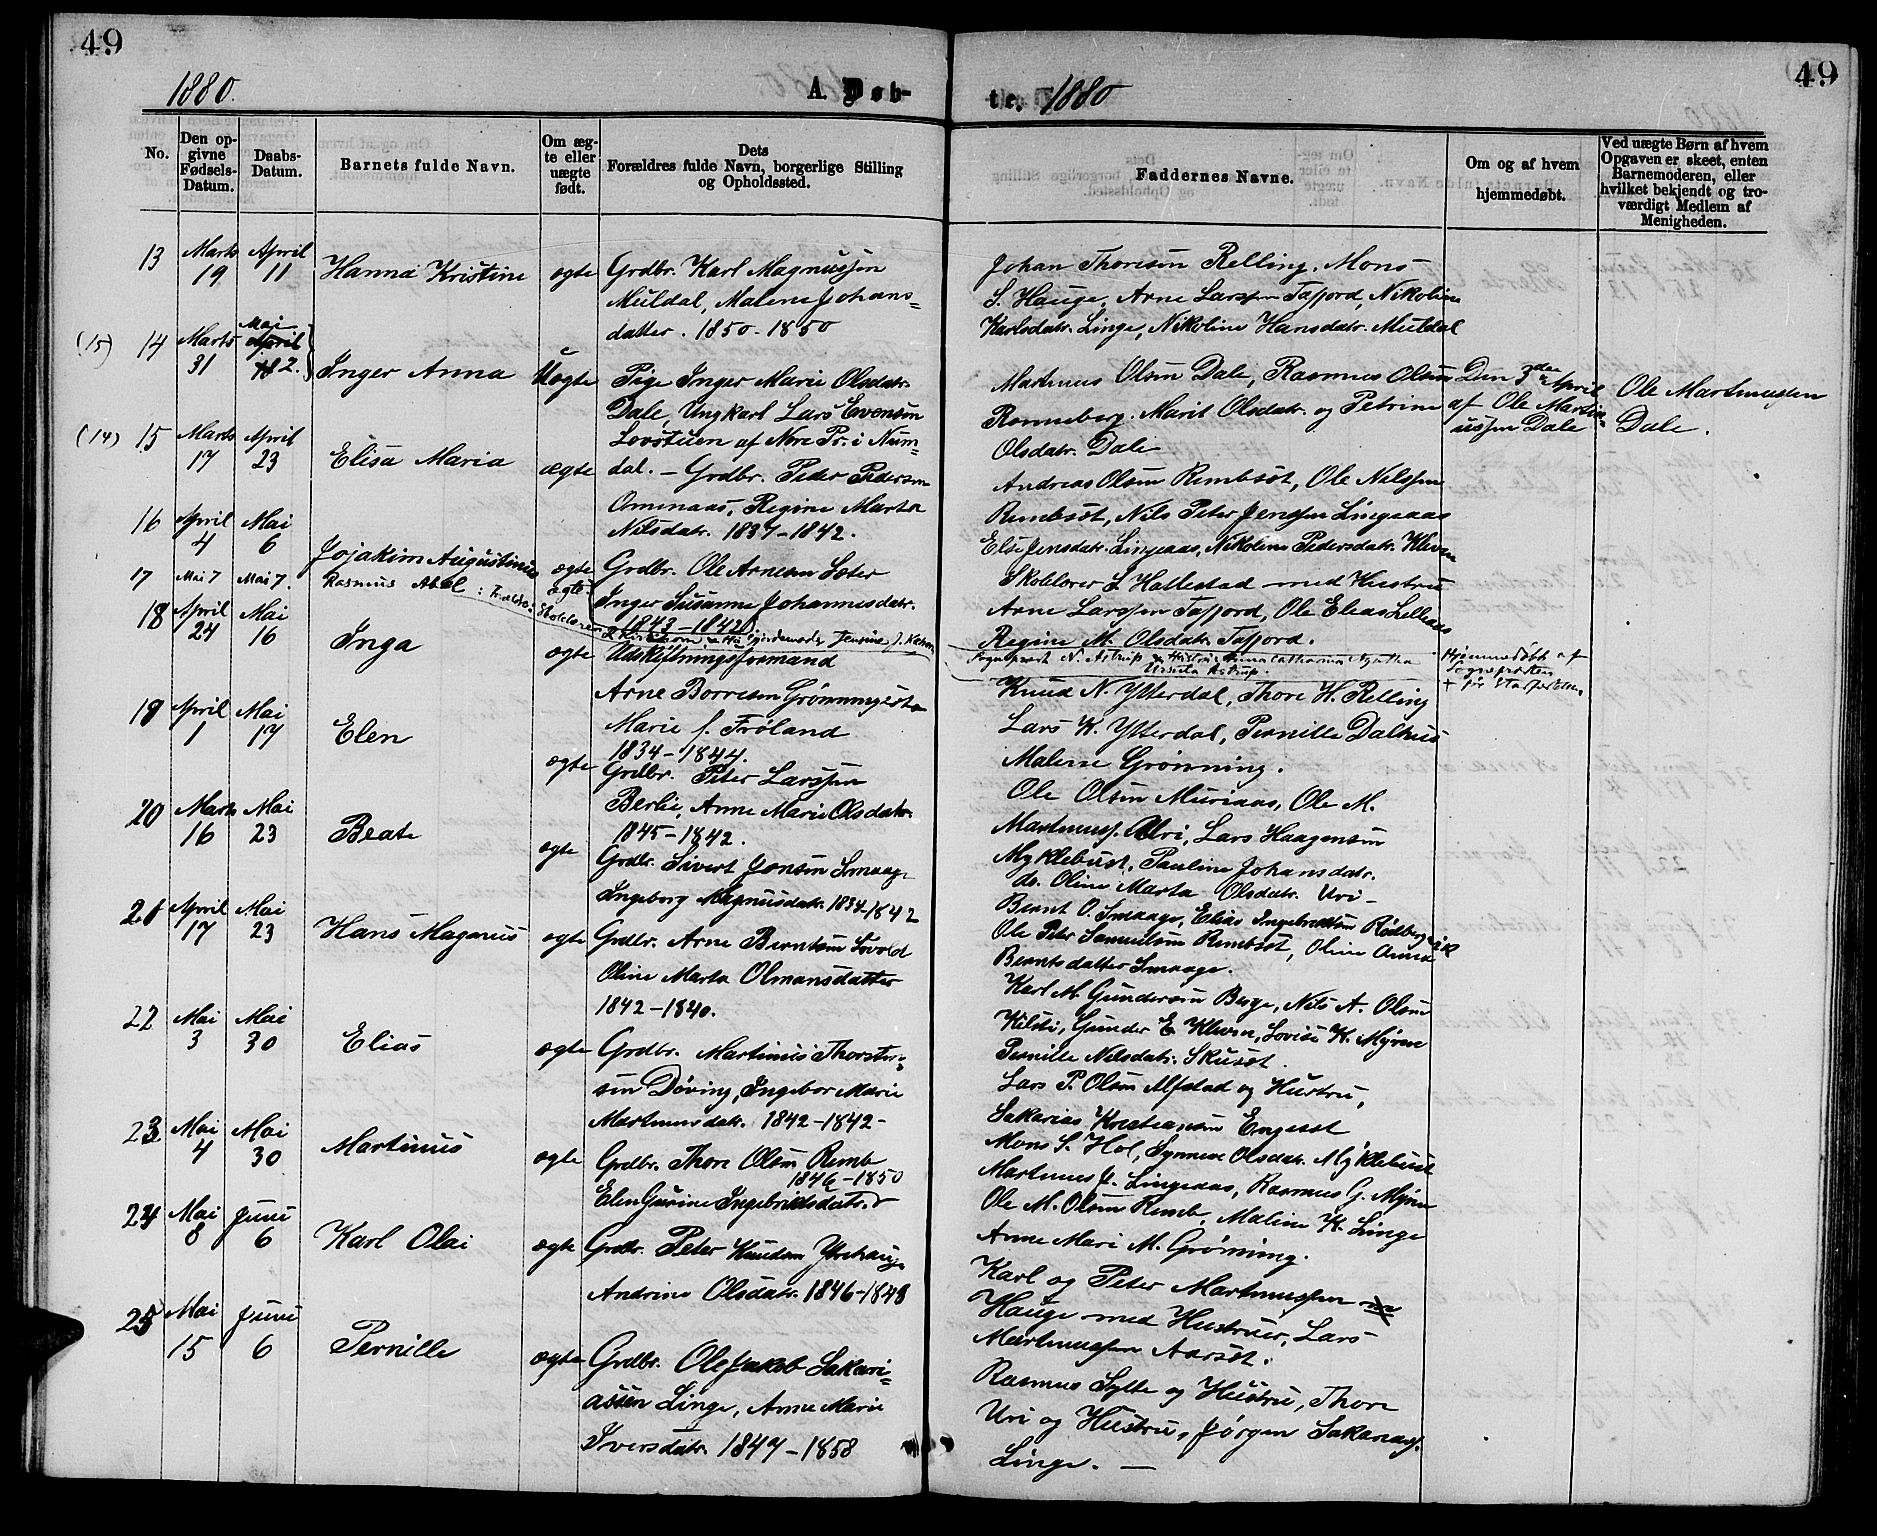 49
49
1880.
A. Døb-
te. 1880
No.
Den op-
givne
Fødsels-
Datum.
Daabs-
Datum.
Barnets fulde Navn.
Om æg-
te eller
uægte
født.
Dets
Forældres fulde Navn, borgerlige Stilling
og Opholdssted.
Faddernes Navne.
Om og af hvem
hjemmedøbt.
Ved uægte Børn af hvem
Opgaven er skeet, enten
Barnemoderen, eller
hvilket bekjendt og tro-
værdigt Medlem af
Menigheden.
13 Marts 19 April 11 Hanna Kristine ægte
Grdbr. Karl Magnussen
Muldal, Malene Johans-
datter. 1850-1850
Johan Thoresen Relling, Mons
S. Hauge, Arne Larssen Tafjord, Nikoline
Karlsdatr. Linge, Nikoline Hansdatr. Muldal
(15) 14 Marts 31 Mai April 2. Inger Anna Uægte
Pige Inger Marie Olsdatr.
Dale, Ungkarl Lars Evensen
Lovstuen af Nore Pr. i Num-
dal.
Martinus Olsen Dale, Rasmus Olsen
Ronneberg. Marit Olsdatr. og Petrine
Olsdatr. Dale
Den 3die April
af Ole Martin-
ussen Dale
Ole Martinussen
Dale.
(14) 15 Marts 17 April 23 Elisa Maria ægte
Grdbr. Peder Pedersen
Omenaas, Regine Marta
Nilsdatr. 1837-1842.
Andreas Olsen Rembsøt, Ole Nilssen
Rembsøt, Nils Peter Jenssen Lingeaas
Else Jensdatr. Lingeaas, Nikoline Pedersdatr. Kleven
16 April 4 Mai 6 Jojakim Augustinus ægte
Grdbr. Ole Arnesen Sæter
Inger Susanne Johannesdatr.
1843-1842
Skolelærer S. Hallestad med Hustru
Arne Larssen Tafjord, Ole Elias Lilleaas
Regine M. Olsdatr. Tafjord.
17 Mai 7 Mai 7. Rasmus Abel ægte
Forældre: Skolelærer
Jensine f.
Sogneprest N. Astrup Hustru Anna Catharina Agatha
Ursula Astrup
Hjemmedøbt af
Sognepresten
18 April 24 Mai 16 Inga ægte
Udskiftningsformand
Arne Borresen Grønningsæter
Marie f. Frøland
1834-1844.
Knud N. Ytterdal, Thore H. Relling
Lars K. Ytterdal, Pernille Dalhus
Malene Grønning.
19 April 1 Mai 17 Elen ægte
Grdbr. Peter Larssen
Berlie, Anne Marie Olsdatr.
1845-1842.
Ole Olsen Muriaas, Ole M.
Martinuss. Uri, Lars Haagensen
Myklebust, Pauline Johansdatr.
do. Oline Marta Olsdatr. Uri-
20 Marts 16 Mai 23 Beate ægte
Grdbr. Sivert Jonsen Smaage
Ingeborg Magnusdatr. 1834-1842
Bernt O. Smaage, Elias Ingebriktsen Rødberg
Ole Peter Samuelsen Rembsøt, Oline Anna
Berntsdatter Smaage.
21 April 17 Mai 23 Hans Magnus ægte
Grdbr. Arne Berntsen Løvold
Oline Marta Olmansdatter
1842-1840.
Karl M. Gundersen Berge, Nils A. Olsen
Kilsti, Gunder E Kleven, Lovise K. Myren
Pernille Nilsdatr. Skusøt.
22 Mai 3 Mai 30 Elias ægte
Grdbr. Martinus Thorster-
sen Døving, Ingebor Marie
Martinusdatr. 1842-1842-
Lars P. Olsen Alfstad og Hustru,
Sakarias Kristiansen Engeset
Mons S. Hol, Synneve Olsdatr. Myklebust
23 Mai 4 Mai 30 Martinus ægte
Grdbr. Thore Olsen Remb
1846-1850
Elen Gurine Ingebriktsdatr.
Martinus J. Lingeaas, Rasmus G. Myren
Ole M. Olsen Remb, Malene K. Linge
Anne Mari M. Grønning.
24 Mai 8 Juni 6 Karl Olai ægte
Grdbr. Peter Knudsen Ytrehauge
Andrine Olsdatr. 1846-1848
Karl og Peter Martinussen
Hauge med Hustruer, Lars
Martinussen Aarsøt.
25 Mai 15 Juni 6 Pernille ægte
Grdbr. Ole Jakob Sakari-
assen Linge, Anne Marie
Iversdatr. 1847-1858
Rasmus Sylte og Hustru, Thore
Uri og Hustru, Jørgen Sakariass.
Linge. —